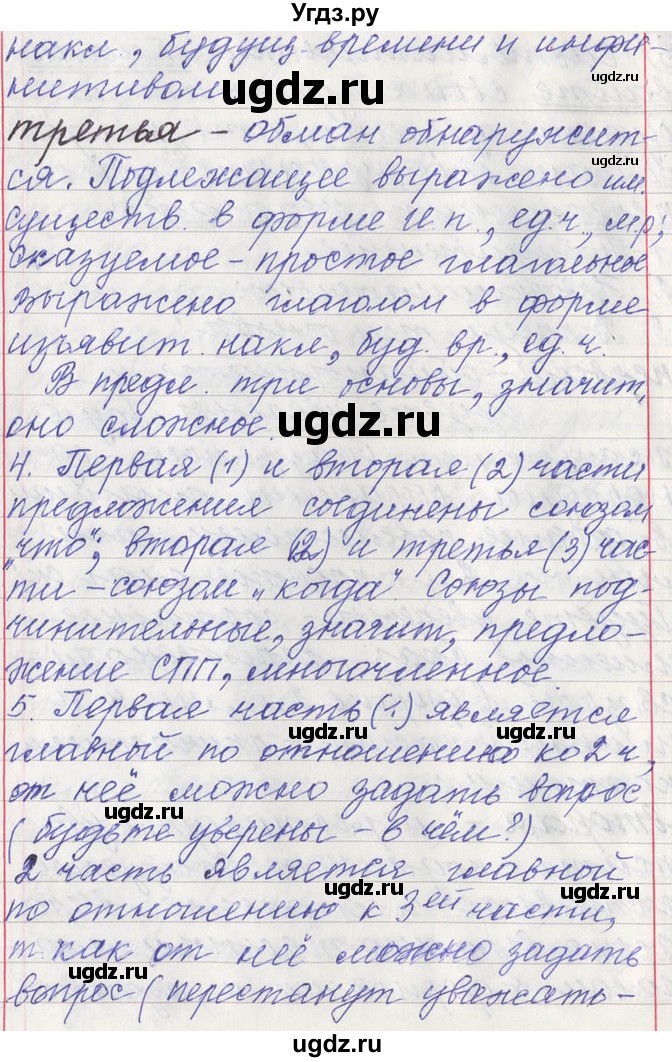 Угдз.ру
накл., будущ. времени и инфи-
нитивом
третья – обман обнаружит-
ся. Подлежащее выражено им.
существ. в форме И.п., ед.ч., м.р,
сказуемое – простое глагольное
выражено глаголом в форме
изъявит. накл, буд. вр., ед. ч.
В предл. три основы, значит,
оно сложное.
4. Первая (1) и вторая (2) части
предложения соединены союзом
"что", вторая (2) и третья (3) час-
ти – союзом "когда". Союзы под-
чинительные, значит, предло-
жение СПП, многочленное
5. Первая часть (1) является
главный по отношению ко 2 ч,
от неё можно задать вопрос
(будьте уверены – в чём?)
2 часть является главной
по отношению к 3ей части,
т. как от неё можно задать
вопрос (перестанут уважать –
uдgdz.ru
uдgdz.ru
uдgdz.ru
uдgdz.ru
uдgdz.ru
uдgdz.ru
uдgdz.ru
uдgdz.ru
uдgdz.ru